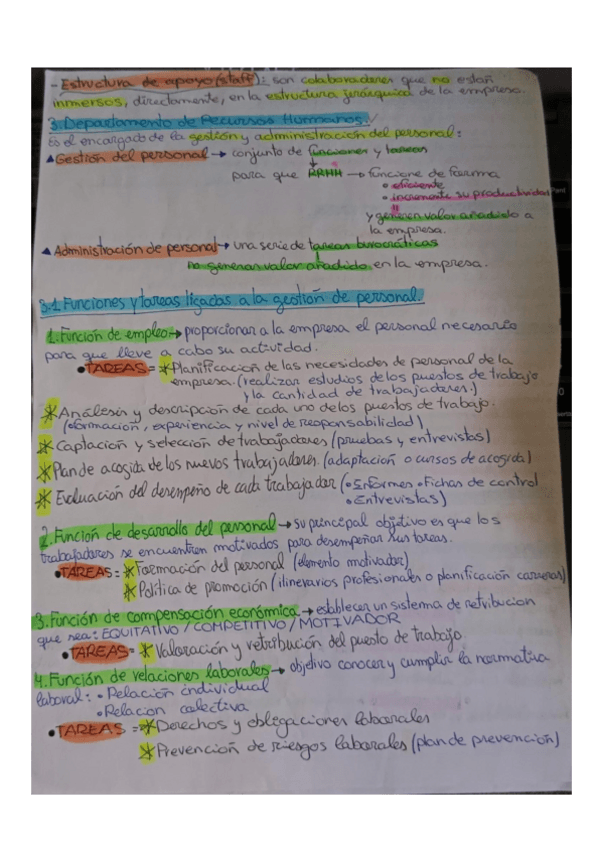 - Estructura de apoyo (staff): son colaboradores que no están
inmersos, directamente, en la estructura jerárquica de la empresa.
3. Departamento de Recursos Humanos.
Es el encargado de la gestión y administración del personal:
▲Gestión del personal → conjunto de funciones y tareas
para que RRHH → funcione de forma
• eficiente
• incremente su productividad
y generen valor añadido a
la empresa.
▲ Administración de personal → una serie de tareas burocráticas
no generan valor añadido en la empresa.
3.1 Funciones y tareas ligadas a la gestión de personal.
1. Función de empleo → proporcionar a la empresa el personal necesario
para que lleve a cabo su actividad.
• TAREAS = * Planificación de las necesidades de personal de la
empresa. (realizar estudios de los puestos de trabajo
y la cantidad de trabajadores.)
* Análisis y descripción de cada uno de los puestos de trabajo.
(formación, experiencia y nivel de responsabilidad)
* Captación y selección de trabajadores (pruebas y entrevistas)
* Plan de acogida de los nuevos trabajadores (adaptación o cursos de acogida)
* Evaluación del desempeño de cada trabajador (• Informes • Fichas de control
• Entrevistas)
2. Función de desarrollo del personal → su principal objetivo es que los
trabajadores se encuentren motivados para desempeñar sus tareas.
• TAREAS = * Formación del personal (elemento motivador)
* Política de promoción (itinerarios profesionales o planificación carreras)
3. Función de compensación económica → establecer un sistema de retribucion
que sea: EQUITATIVO / COMPETITIVO / MOTIVADOR
• TAREAS = * Valoración y retribución del puesto de trabajo
4. Función de relaciones laborales → objetivo conocer y cumplir la normativa
laboral: • Relación individual
• Relacion colectiva
• TAREAS = * Derechos y obligaciones laborales
* Prevención de riesgos laborales (plan de prevención)